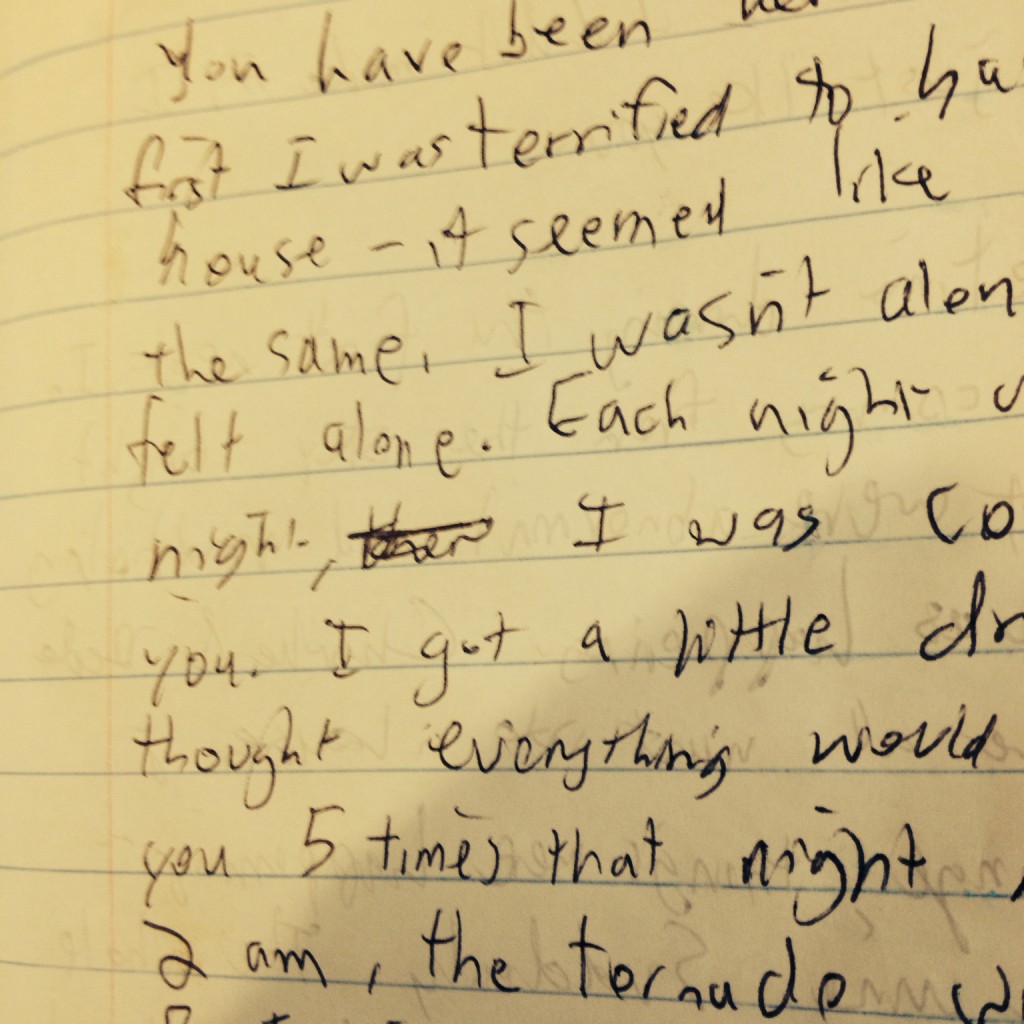 you have been
first I was terrified to ha
house - it seemed like
the same. I wasn't alon
felt alone. Each night
night, I was co
you. I got a little dr
thought everything would
you 5 times that night
2 am, the tornado w